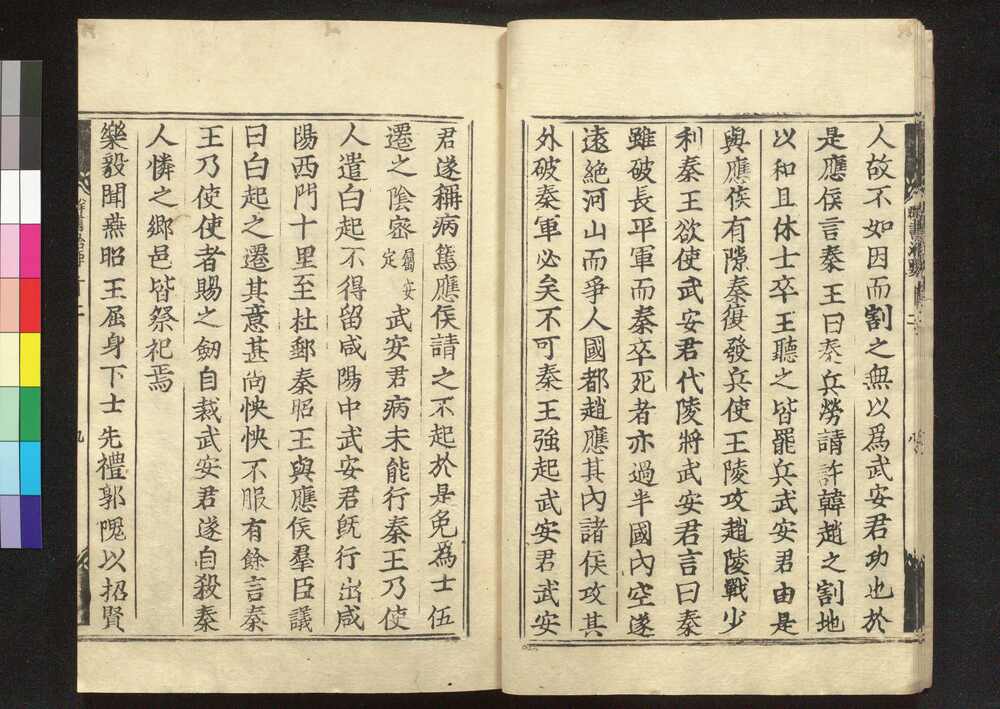 人故不如因而割之無以爲武安君功也於
是應侯言秦王曰秦兵勞請許韓趙之割地
以和且休士卒王聽之皆罷兵武安君由是
與應侯有隙秦復發兵使王陵攻趙陵戰少
利秦王欲使武安君代陵將武安君言曰秦
雖破長平軍而秦卒死者亦過半國內空遂
遠絶河山而爭人國都趙應其內諸侯攻其
外破秦軍必矣不可秦王強起武安君武安
君遂稱病篤應侯請之不起於是免爲士伍
遷之陰密屬安定武安君病未能行秦王乃使
人遣白起不得留咸陽中武安君旣行出咸
陽西門十里至杜郵秦昭王與應侯羣臣議
曰白起之遷其意甚尙怏怏不服有餘言秦
王乃使使者賜之劒自裁武安君遂自殺秦
人憐之鄉邑皆祭祀焉
樂毅聞燕昭王屈身下士先禮郭隗以招賢